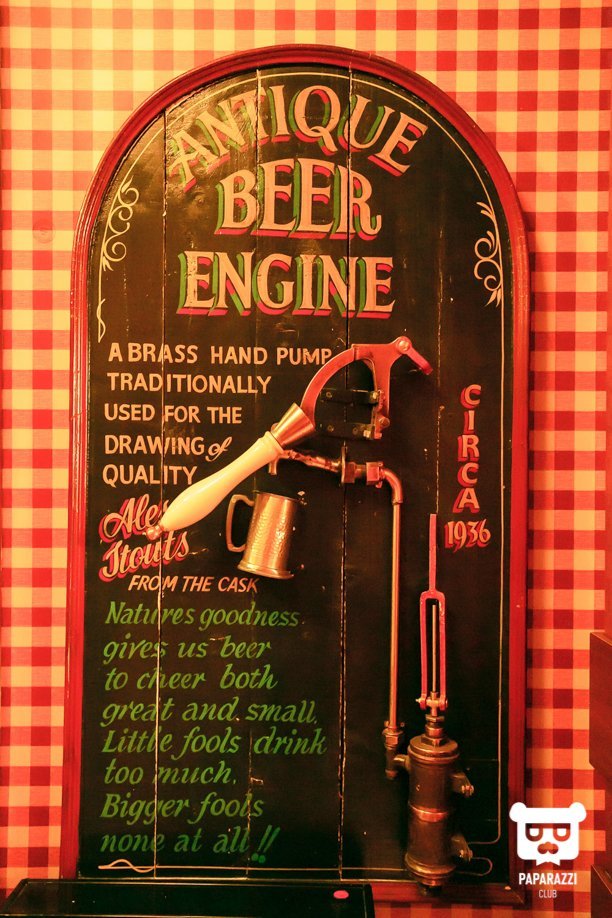 ANTIQUE
BEER
ENGINE
A BRASS HAND PUMP
TRADITIONALLY
USED FOR THE
DRAWING of
QUALITY
Ales
Stouts
FROM THE CASK
CIRCA
1936
Natures goodness
gives us beer
to cheer both
great and small,
Little fools drink
too much,
Bigger fools
none at all!!
PAPARAZZI
CLUB